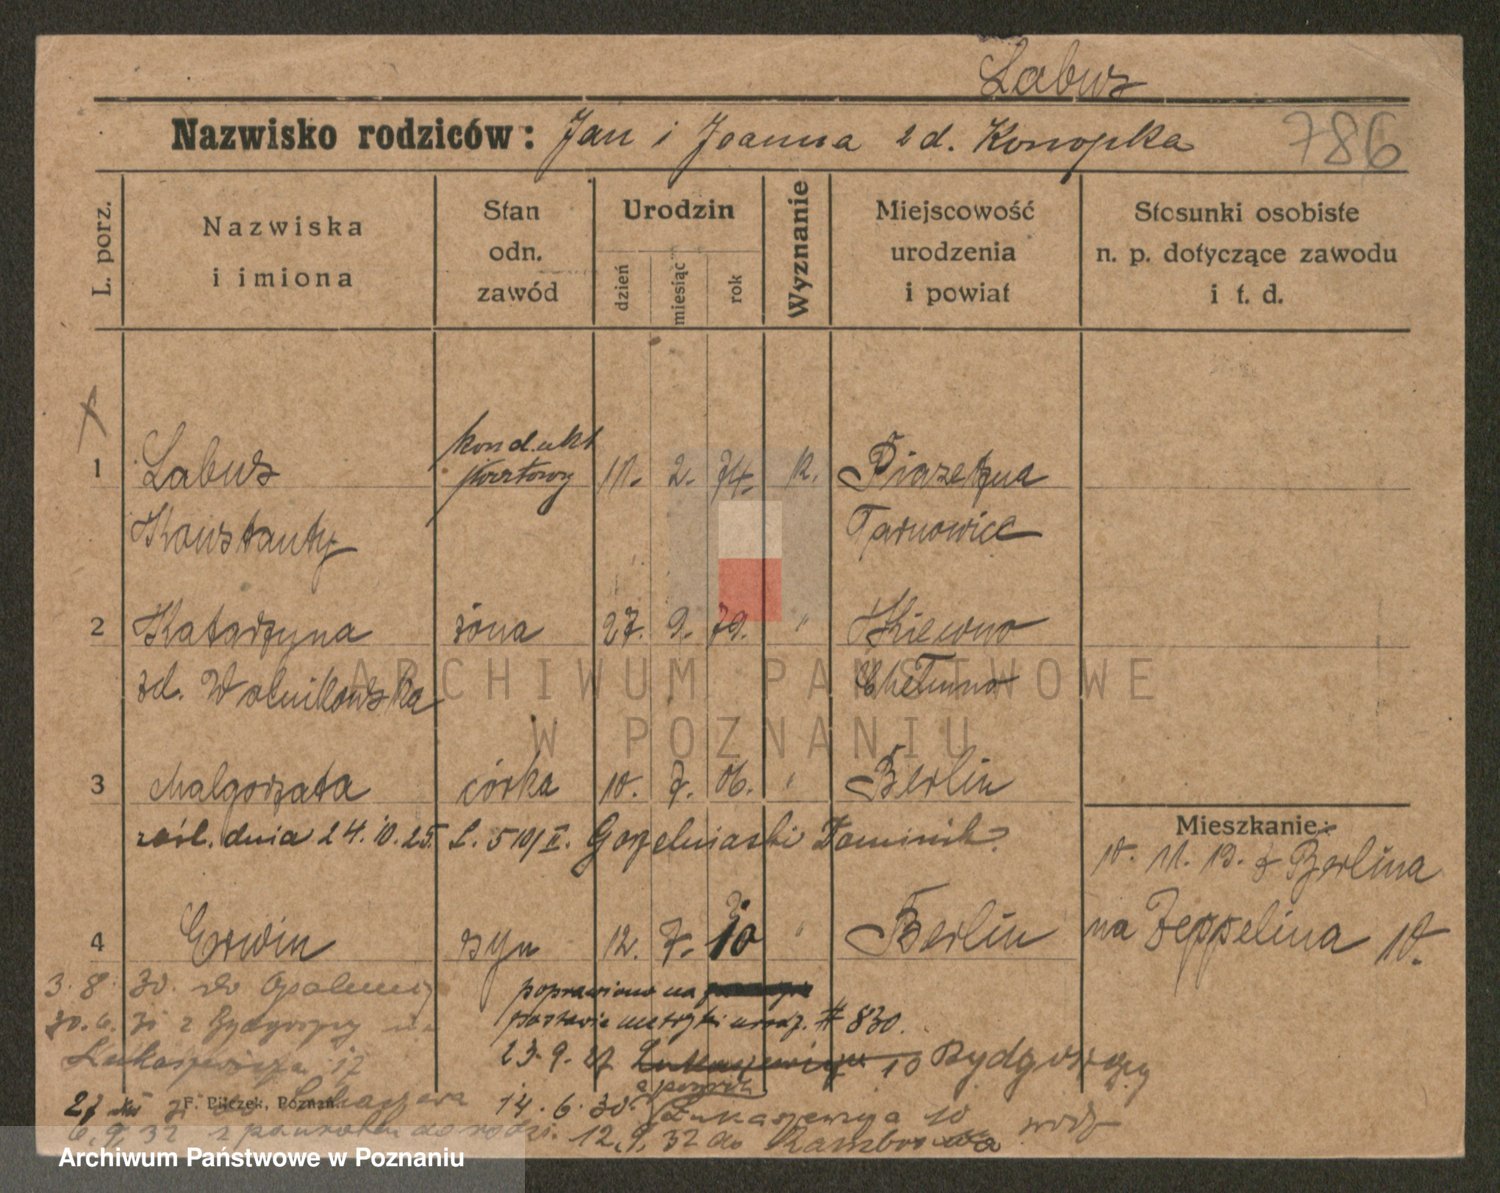 Labus
Nazwisko rodziców: Jan i Joanna zd. Konopka 786
L. porz.
Nazwiska i imiona
Stan odn. zawód
Urodzin
dzień miesiąc rok
Wyznanie
Miejscowość urodzenia i powiat
Stosunki osobiste n. p. dotyczące zawodu i t. d.
1 Labus kondukt pocztowy 11. 2. 74. k. Piasetzna
Konstanty Tarnowice
2 Katarzyna żona 27. 9. 79. " Kiewno
zd. Wolnikowska Chełmno
ARCHIWUM PAŃSTWOWE
W POZNANIU
3 Małgorzata córka 10. 7. 06. " Berlin
zaśl. dnia 24.10.25. L. 510/II. Gozelniaski Dominik.
Mieszkanie:
10. 11. 19. z Berlina
4 Erwin syn 12. 7. 10 " Berlin
na Zeppelina 10.
3. 8. 30. do Opalenicy
poprawiono na
30. 6. 31 z Bydgoszczy
# 830.
Łukaszewicza 17
23. 9. 27 Łukaszewicza 10 Bydgoszczy
27
F. Pilczek, Poznań.
14. 6. 30
Łukaszewicza 10
6. 9. 32 z powrotem do rodz. 12. 9. 32 do
Archiwum Państwowe w Poznaniu